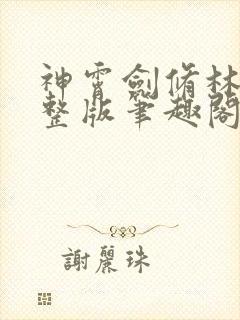 神霄劍脩林
整版筆趣閣
謝麗珠